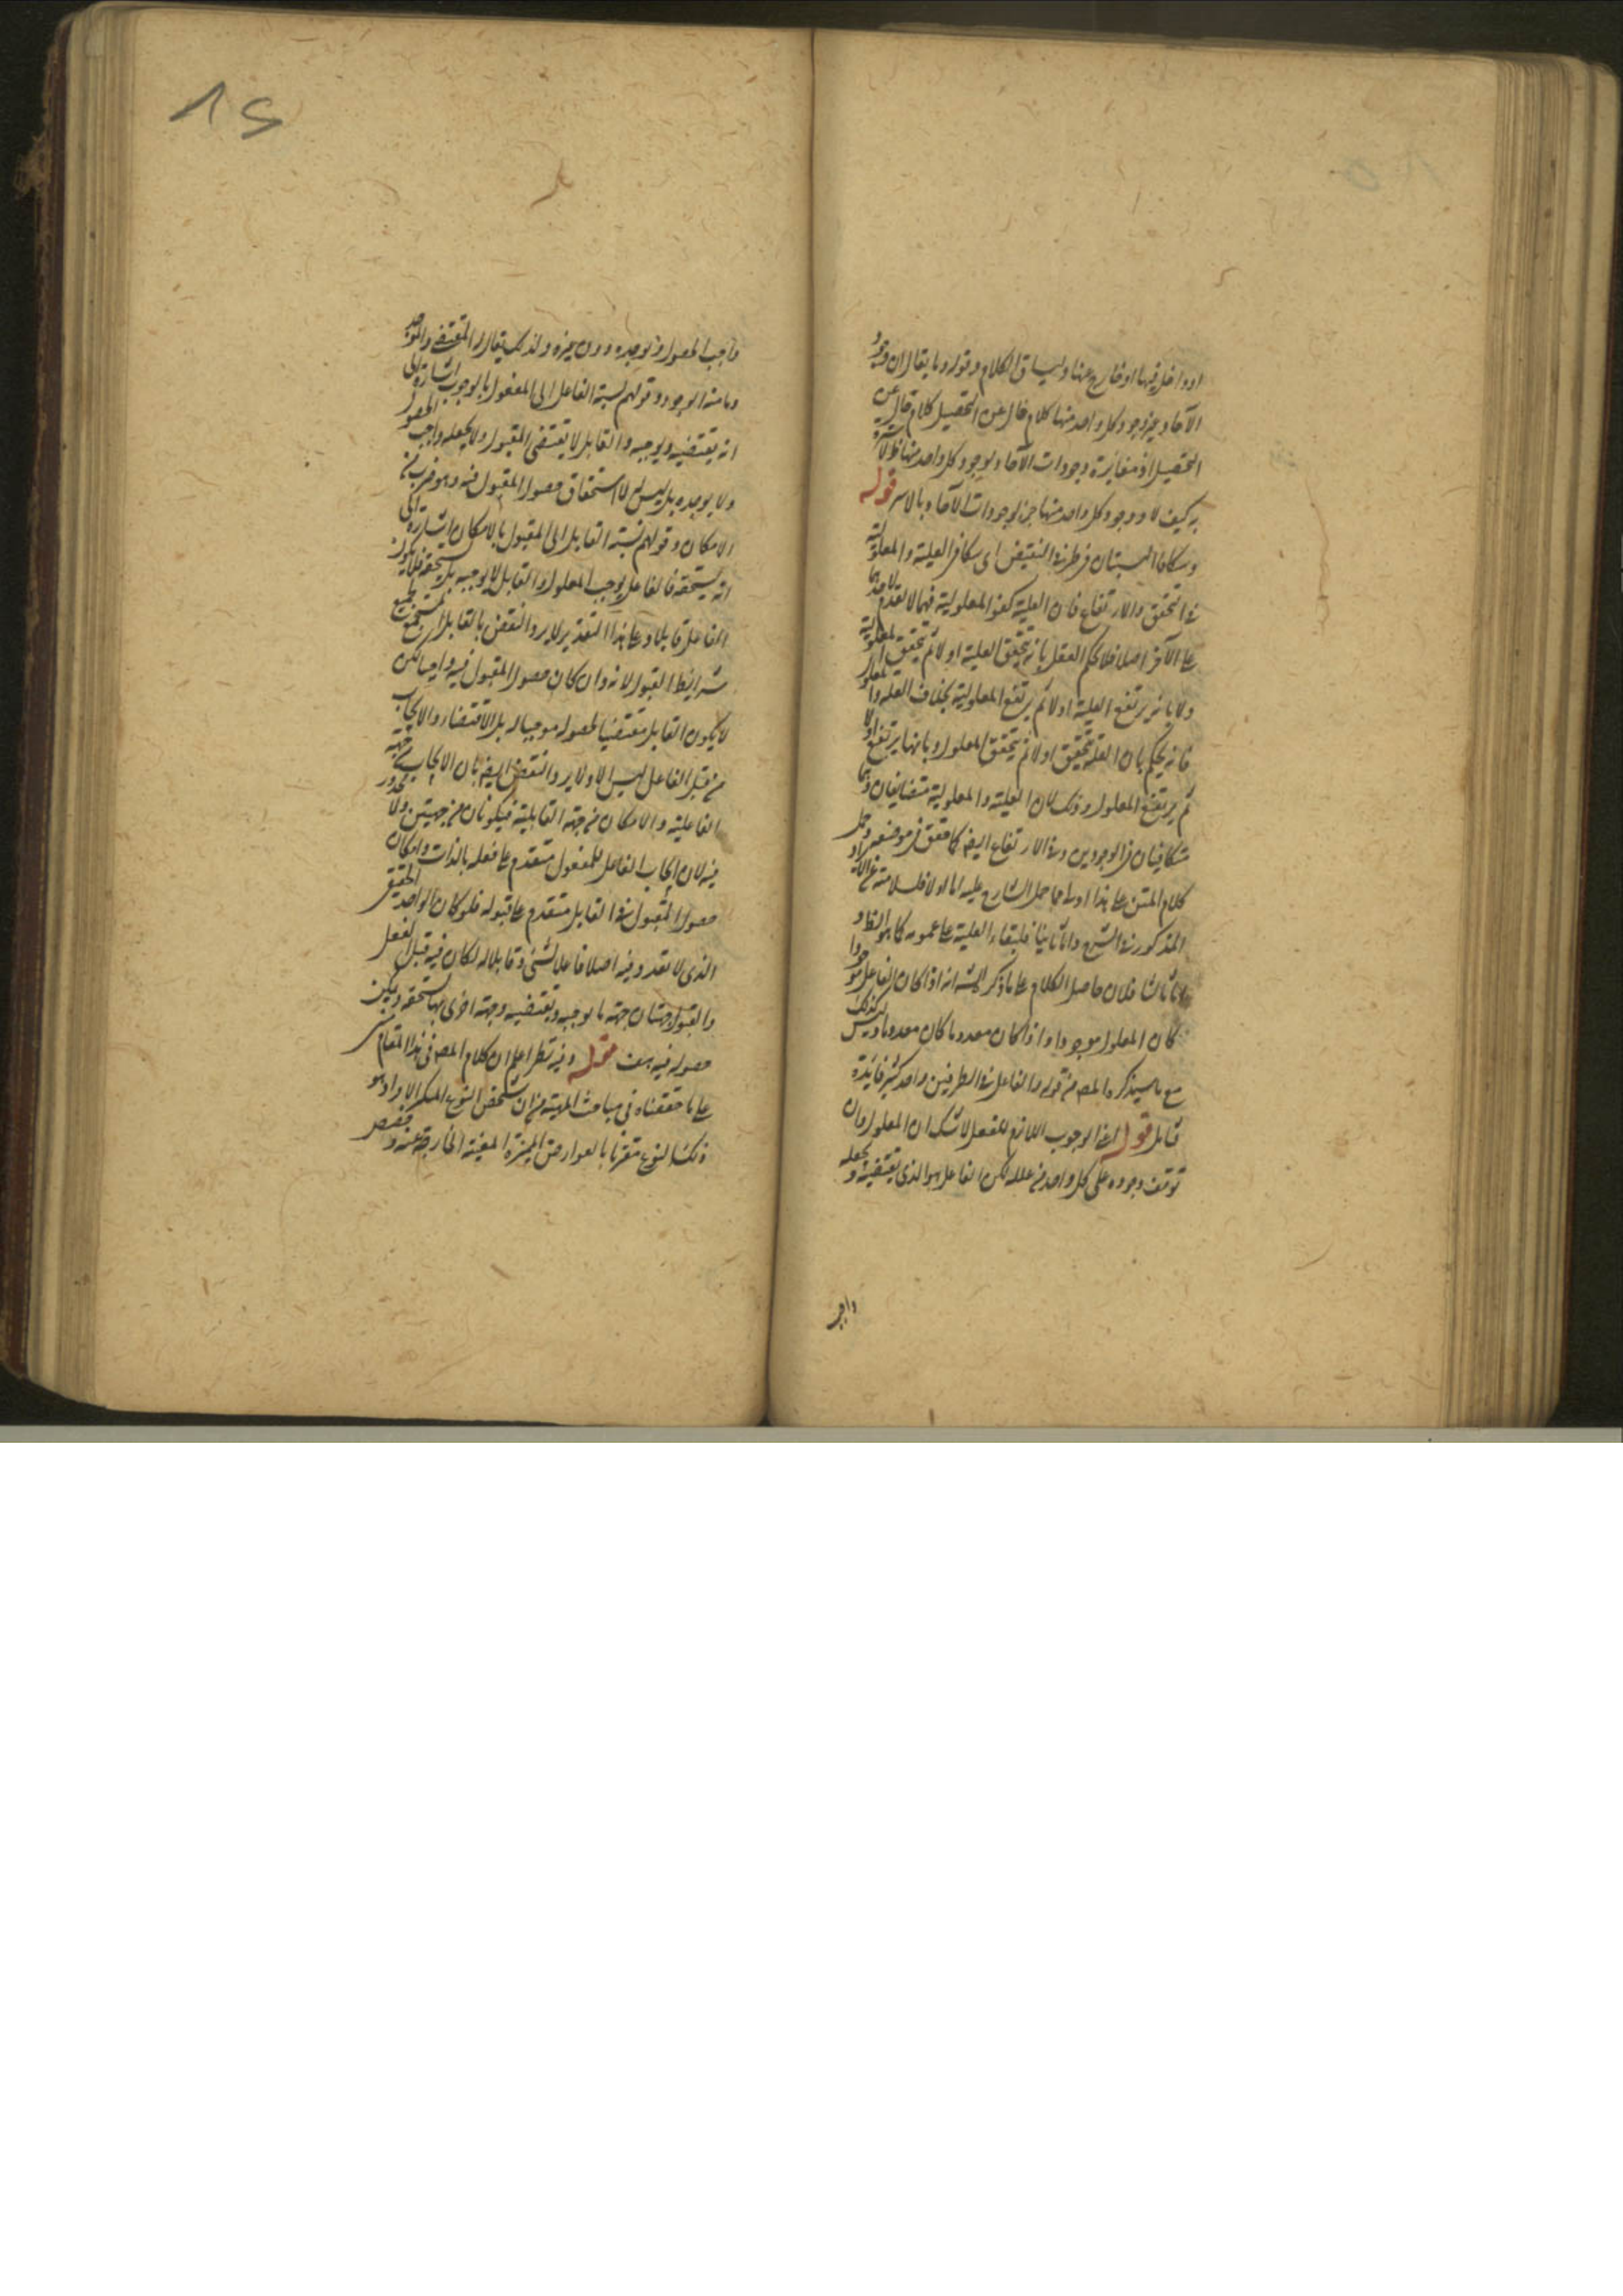 او داخل فيها او خارج عنها وليساق الكلام وقوله وما يقال ان وجود
الآحاد غير وجود كل واحد منها كلام خال عن التحصيل كلام خال عن
التحصيل اذ مغايرة وجودات الآحاد لوجود كل واحد منها ظ لا سترة
به كيف لا ووجود كل واحد منها جزء لوجودات الآحاد بالاسر قوله
وتتكافا النسبتان في طرفى النقيض اى يتكافى العلية والمعلولية
فى التحقق والارتفاع فان العلية كفو المعلولية فهما لا تقدم لاحدهما
على الآخر اصلا فلا يحكم العقل بانه يتحقق العلية اولا ثم يتحقق المعلولية
ولا بانه يرتفع العلية اولا ثم يرتفع المعلولية بخلاف العلة والمعلول
فانه يحكم بان العلة تتحقق اولا ثم يتحقق المعلول وبانها يرتفع اولا
ثم يرتفع المعلول وذلك لان العلية والمعلولية متضايفان وهما
متكافيان فى الوجودين وفى الارتفاع ايضا كما حقق فى موضعه وحمل
كلام المتن على هذا اولى مما حمل الشارح عليه اما اولا فلسلامته عن الايراد
المذكور فى الشرح واما ثانيا فلبقاء العلية على عمومه كما هو الظ و
اما ثالثا فلان حاصل الكلام على ما ذكره الش انه اذا كان الفاعل موجودا
كان المعلول موجودا واذا كان معدوما كان معدوما وليس لذلك
مع ما سيذكره المص من قوله والفاعل فى الطرفين واحد كثير فائدة
تأمل قوله اعنى الوجوب اللازم للفعل لا شك ان المعلول وان
توقف وجوده على كل واحد من علله لكن الفاعل هو الذى يقتضيه ويجعله
واجب
واجب الحصول ويوجده دون غيره ولذلك يقال له المقتضى والموجد
وما منه الوجود وقولهم نسبة الفاعل الى المفعول بالوجوب اشارة الى
انه يقتضيه ويوجبه والقابل لا يقتضى المقبول ولا يجعله واجب الحصول
ولا يوجده بل ليس له الا استحقاق حصول المقبول فيه وهو ضرب من
الامكان وقولهم نسبة القابل الى المقبول بالامكان اشارة الى
انه يستحقه فالفاعل يوجب المعلول والقابل لا يوجبه بل يستحقه فلا يكون
الفاعل قابلا وعلى هذا التقدير لا يرد النقض بالقابل المستجمع لجميع
شرايط القبول لانه وان كان حصول المقبول فيه واجبا لكن
لا يكون القابل مقتضيا لحصوله موجبا له بل الاقتضاء والايجاب
من قبل الفاعل ليس الا ولا يرد النقض ايضا بان الايجاب من جهة
الفاعلية والامكان من جهة القابلية فيكونان من جهتين ولا محذور
فيه لان ايجاب الفاعل للمفعول متقدم على فعله بالذات وامكان
حصول المقبول فى القابل متقدم على قبوله فلو كان الواحد الحقيقى
الذى لا تعدد فيه اصلا فاعلا لشئ وقابلا له لكان فيه قبل الفعل
والقبول جهتان جهة بها يوجبه ويقتضيه وجهة اخرى بها يستحقه ويمكن
حصوله فيه هف قوله وفيه نظر اعلم ان كلام المص فى هذا المقام
على ما حققناه فى مباحث المهية من ان تشخص النوع المتكثر الافراد هو
ذلك النوع مقترنا بالعوارض المميزة المعينة الخارجة عنه